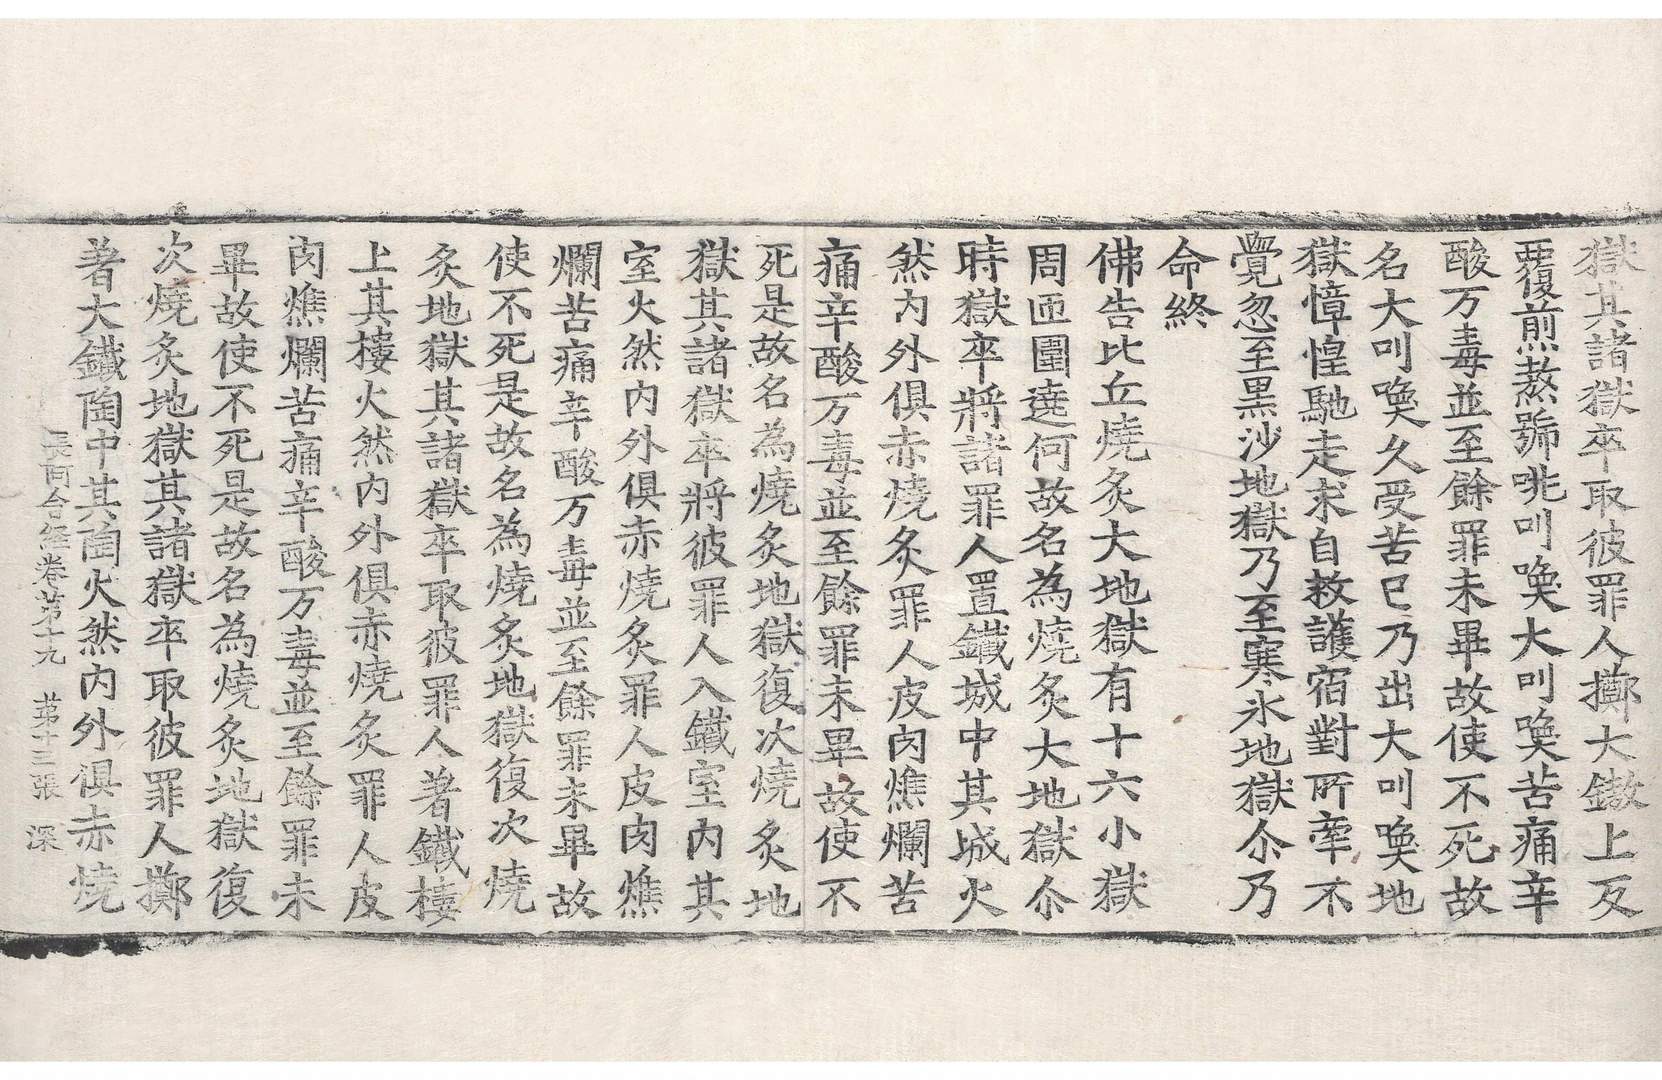 獄其諸獄卒取彼罪人擲大鏊上反
覆煎熬號咷叫喚大叫喚苦痛辛
酸万毒並至餘罪未畢故使不死故
名大叫喚久受苦已乃出大叫喚地
獄慞惶馳走求自救護宿對所牽不
覺忽至黑沙地獄乃至寒氷地獄尒乃
命終
佛告比丘燒炙大地獄有十六小獄
周匝圍遶何故名為燒炙大地獄尒
時獄卒將諸罪人置鐵城中其城火
然內外俱赤燒炙罪人皮肉燋爛苦
痛辛酸万毒並至餘罪未畢故使不
死是故名為燒炙地獄復次燒炙地
獄其諸獄卒將彼罪人入鐵室內其
室火然內外俱赤燒炙罪人皮肉燋
爛苦痛辛酸万毒並至餘罪未畢故
使不死是故名為燒炙地獄復次燒
炙地獄其諸獄卒取彼罪人著鐵樓
上其樓火然內外俱赤燒炙罪人皮
肉燋爛苦痛辛酸万毒並至餘罪未
畢故使不死是故名為燒炙地獄復
次燒炙地獄其諸獄卒取彼罪人擲
著大鐵陶中其陶火然內外俱赤燒
長阿含經卷第十九 第十三張 深